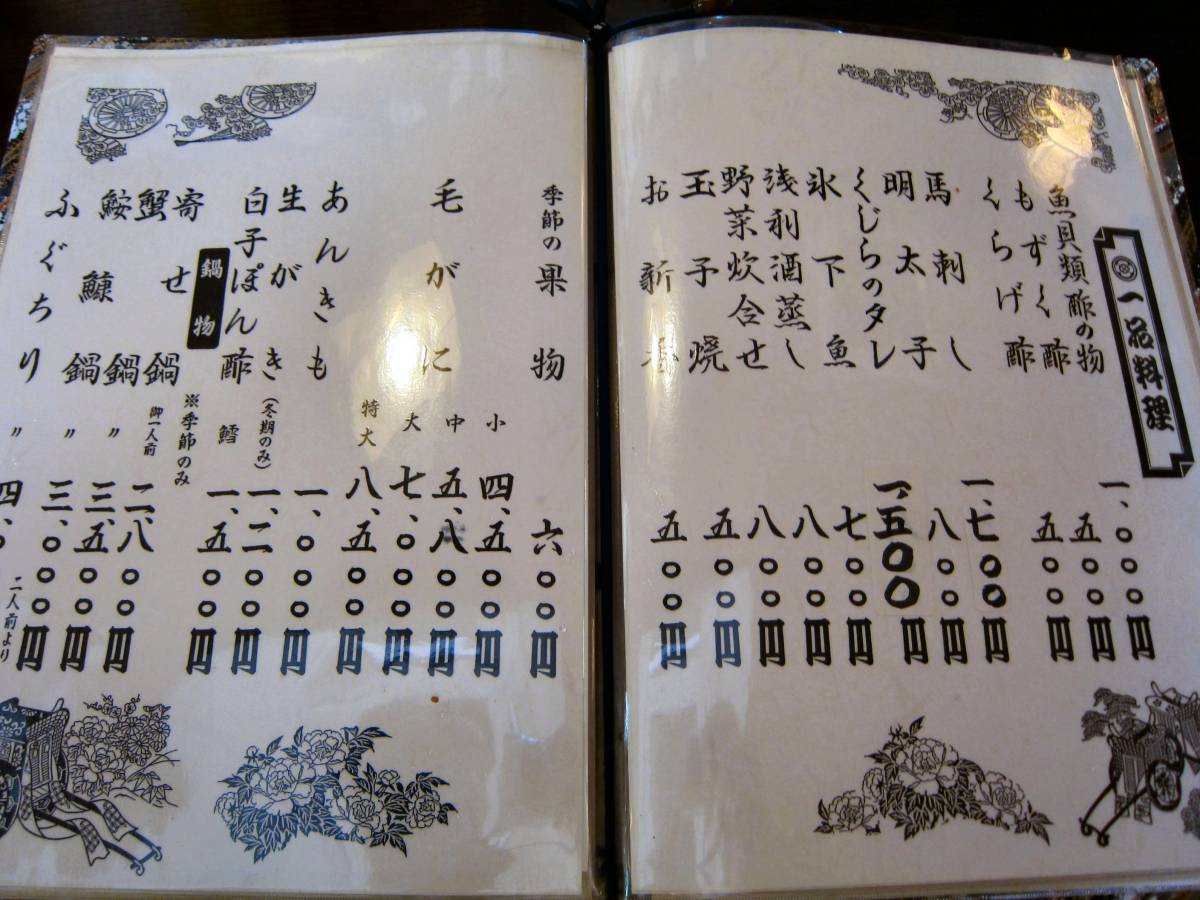 一品料理
魚貝類酢の物 一、〇〇〇円
もずく酢 五〇〇円
くらげ酢 五〇〇円
馬刺し 一、七〇〇円
明太子 八〇〇円
くじらのタレ 一、五〇〇円
氷下魚 七〇〇円
浅利酒蒸し 八〇〇円
野菜炊合せ 八〇〇円
玉子焼 五〇〇円
お新香 五〇〇円
季節の果物 六〇〇円
毛がに 小 四、五〇〇円
中 五、八〇〇円
大 七、〇〇〇円
特大 八、五〇〇円
あんきも 一、〇〇〇円
生がき (冬期のみ) 一、二〇〇円
白子ぽん酢 鱈 一、五〇〇円
鍋物 ※季節のみ
寄せ鍋 御一人前 二、八〇〇円
蟹鍋 〃 三、五〇〇円
鮟鱇鍋 〃 三、〇〇〇円
ふぐちり 〃 四、
二人前より